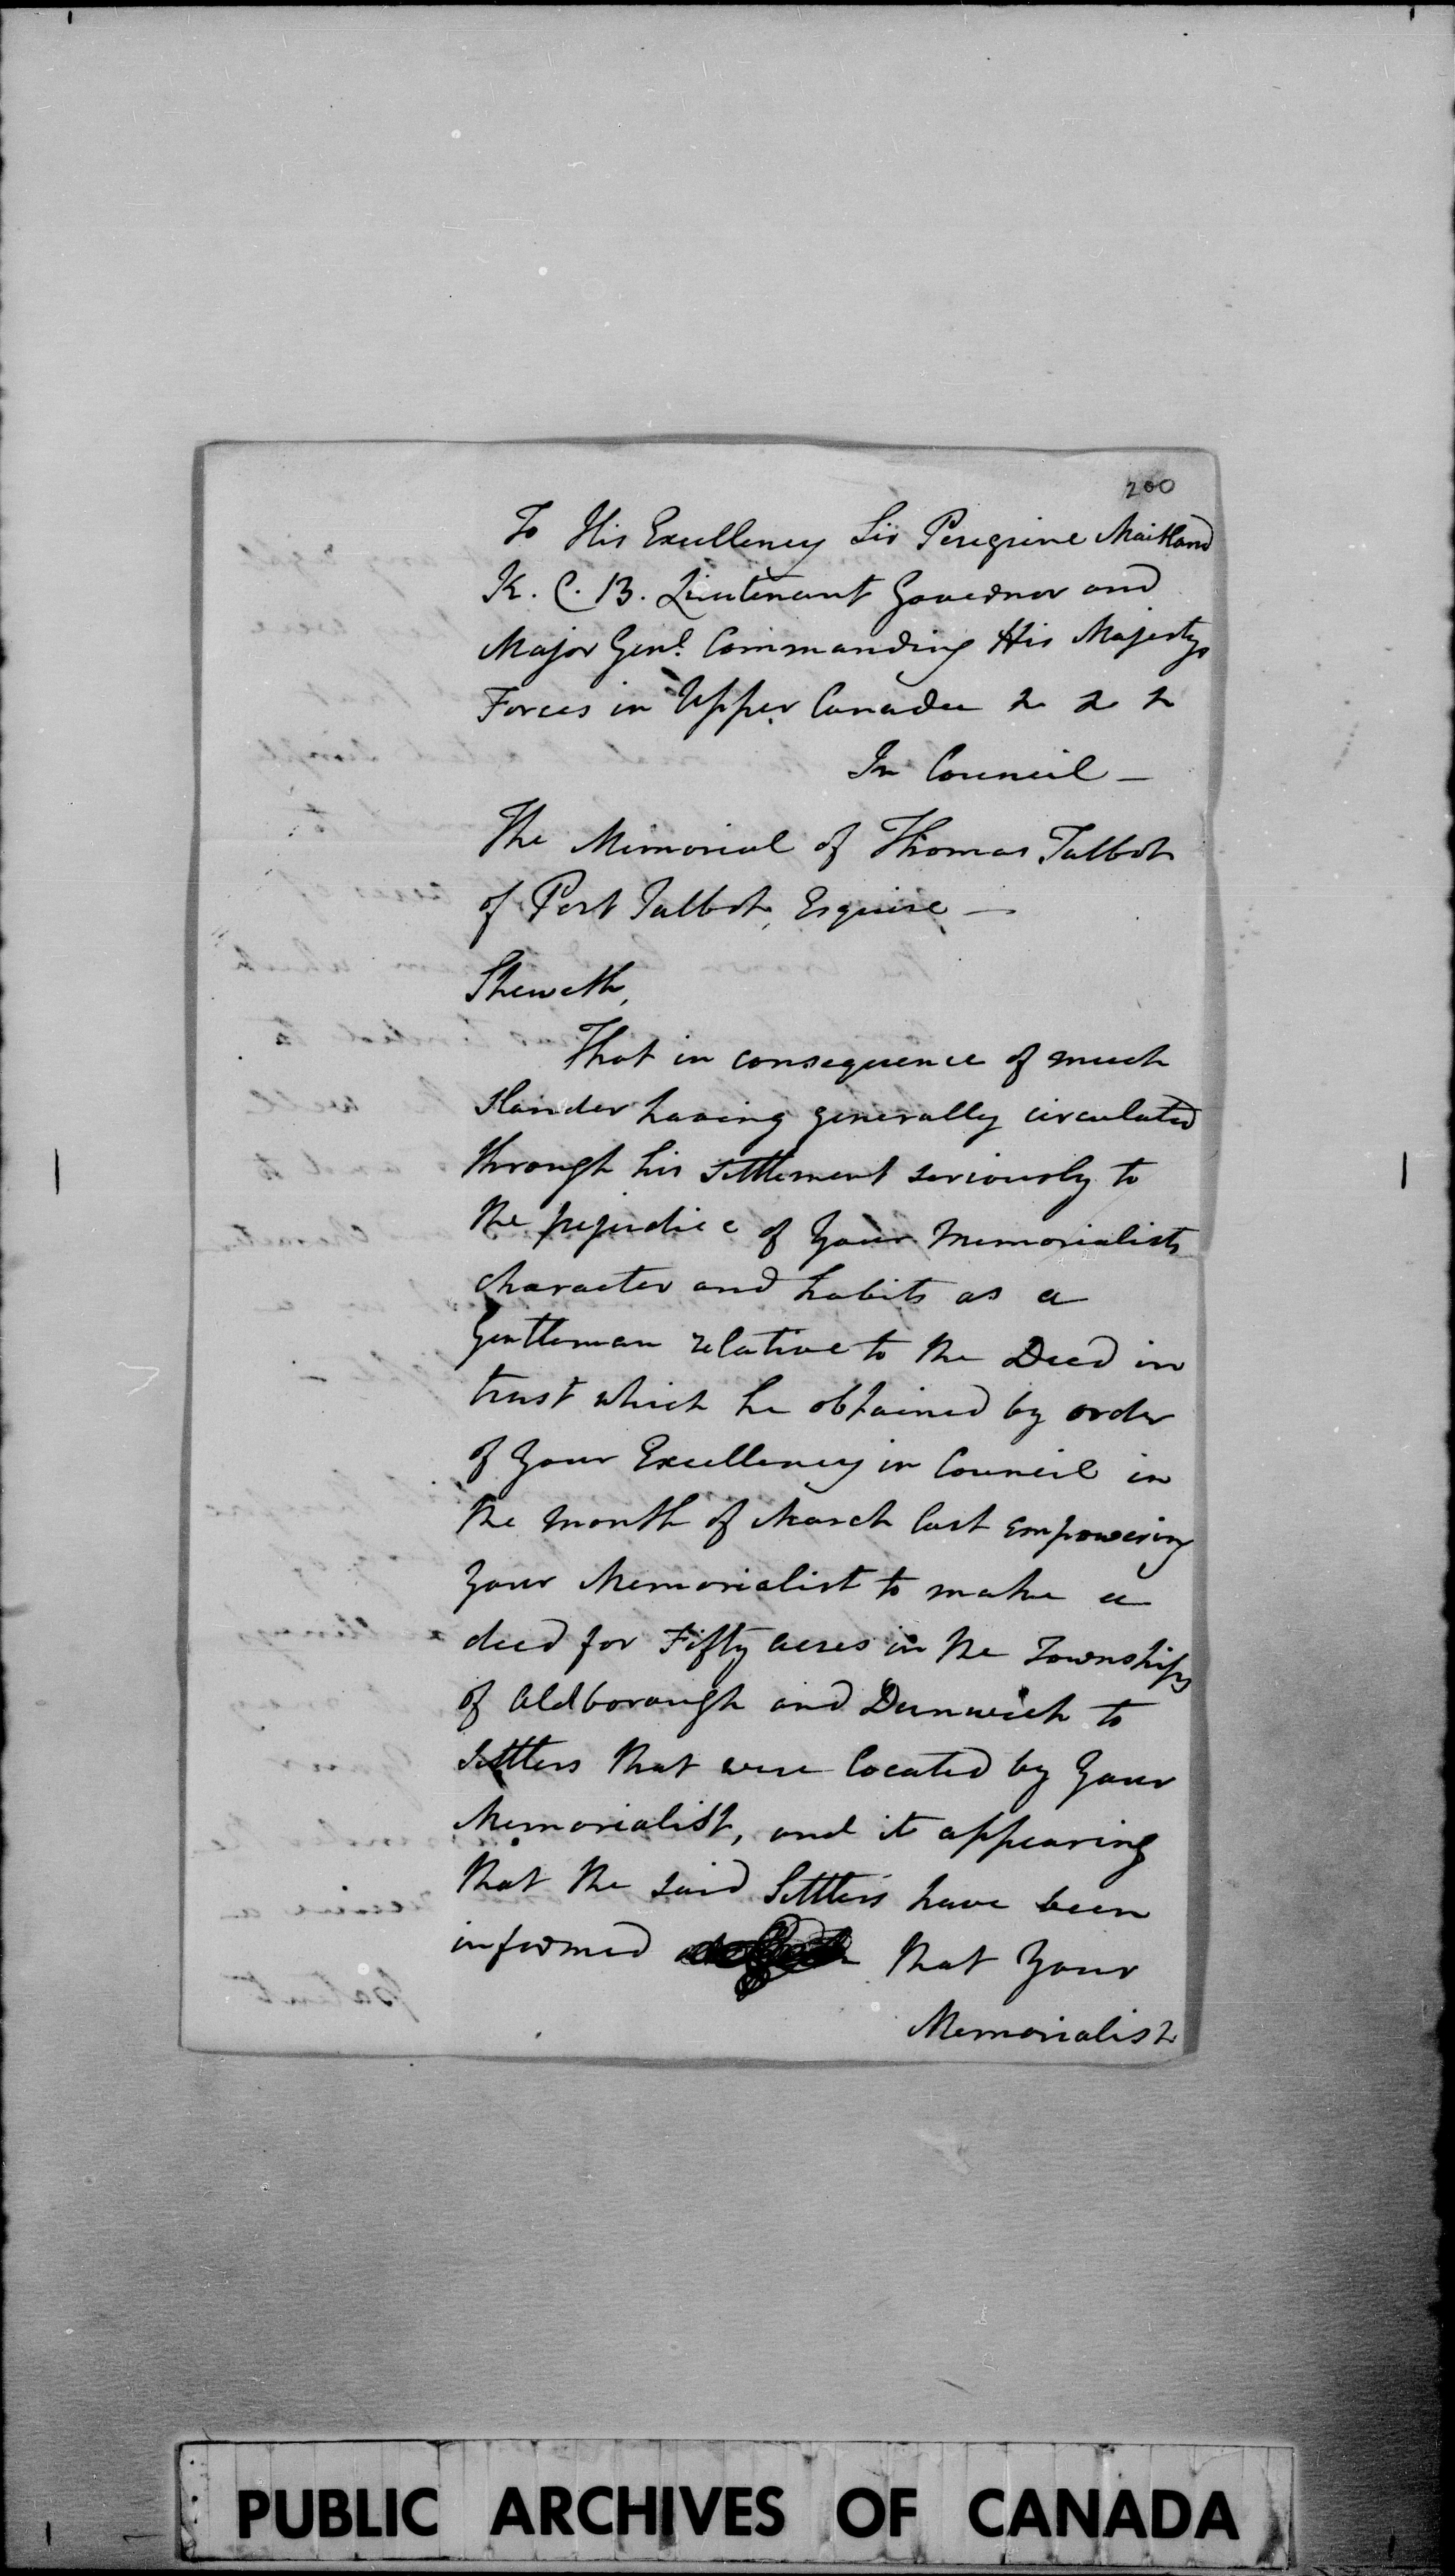 200
To His Excellency Sir Peregrine Maitland
K. C. B. Lieutenant Governor and
Major Genl. Commanding His Majestys
Forces in Upper Canada & & &
In Council —
The Memorial of Thomas Talbot
of Port Talbot, Esquire —
Sheweth,
That in consequence of much
slander having generally circulated
through his settlement seriously to
the prejudice of Your Memorialists
character and habits as a
Gentleman relative to the Deed in
trust which he obtained by order
of Your Excellency in Council in
the month of March last empowering
Your Memorialist to make a
deed for Fifty acres in the Townships
of Aldborough and Dunwich to
Settlers that were located by Your
Memorialist, and it appearing
that the said Settlers have been
informed that Your
Memorialist
PUBLIC ARCHIVES OF CANADA